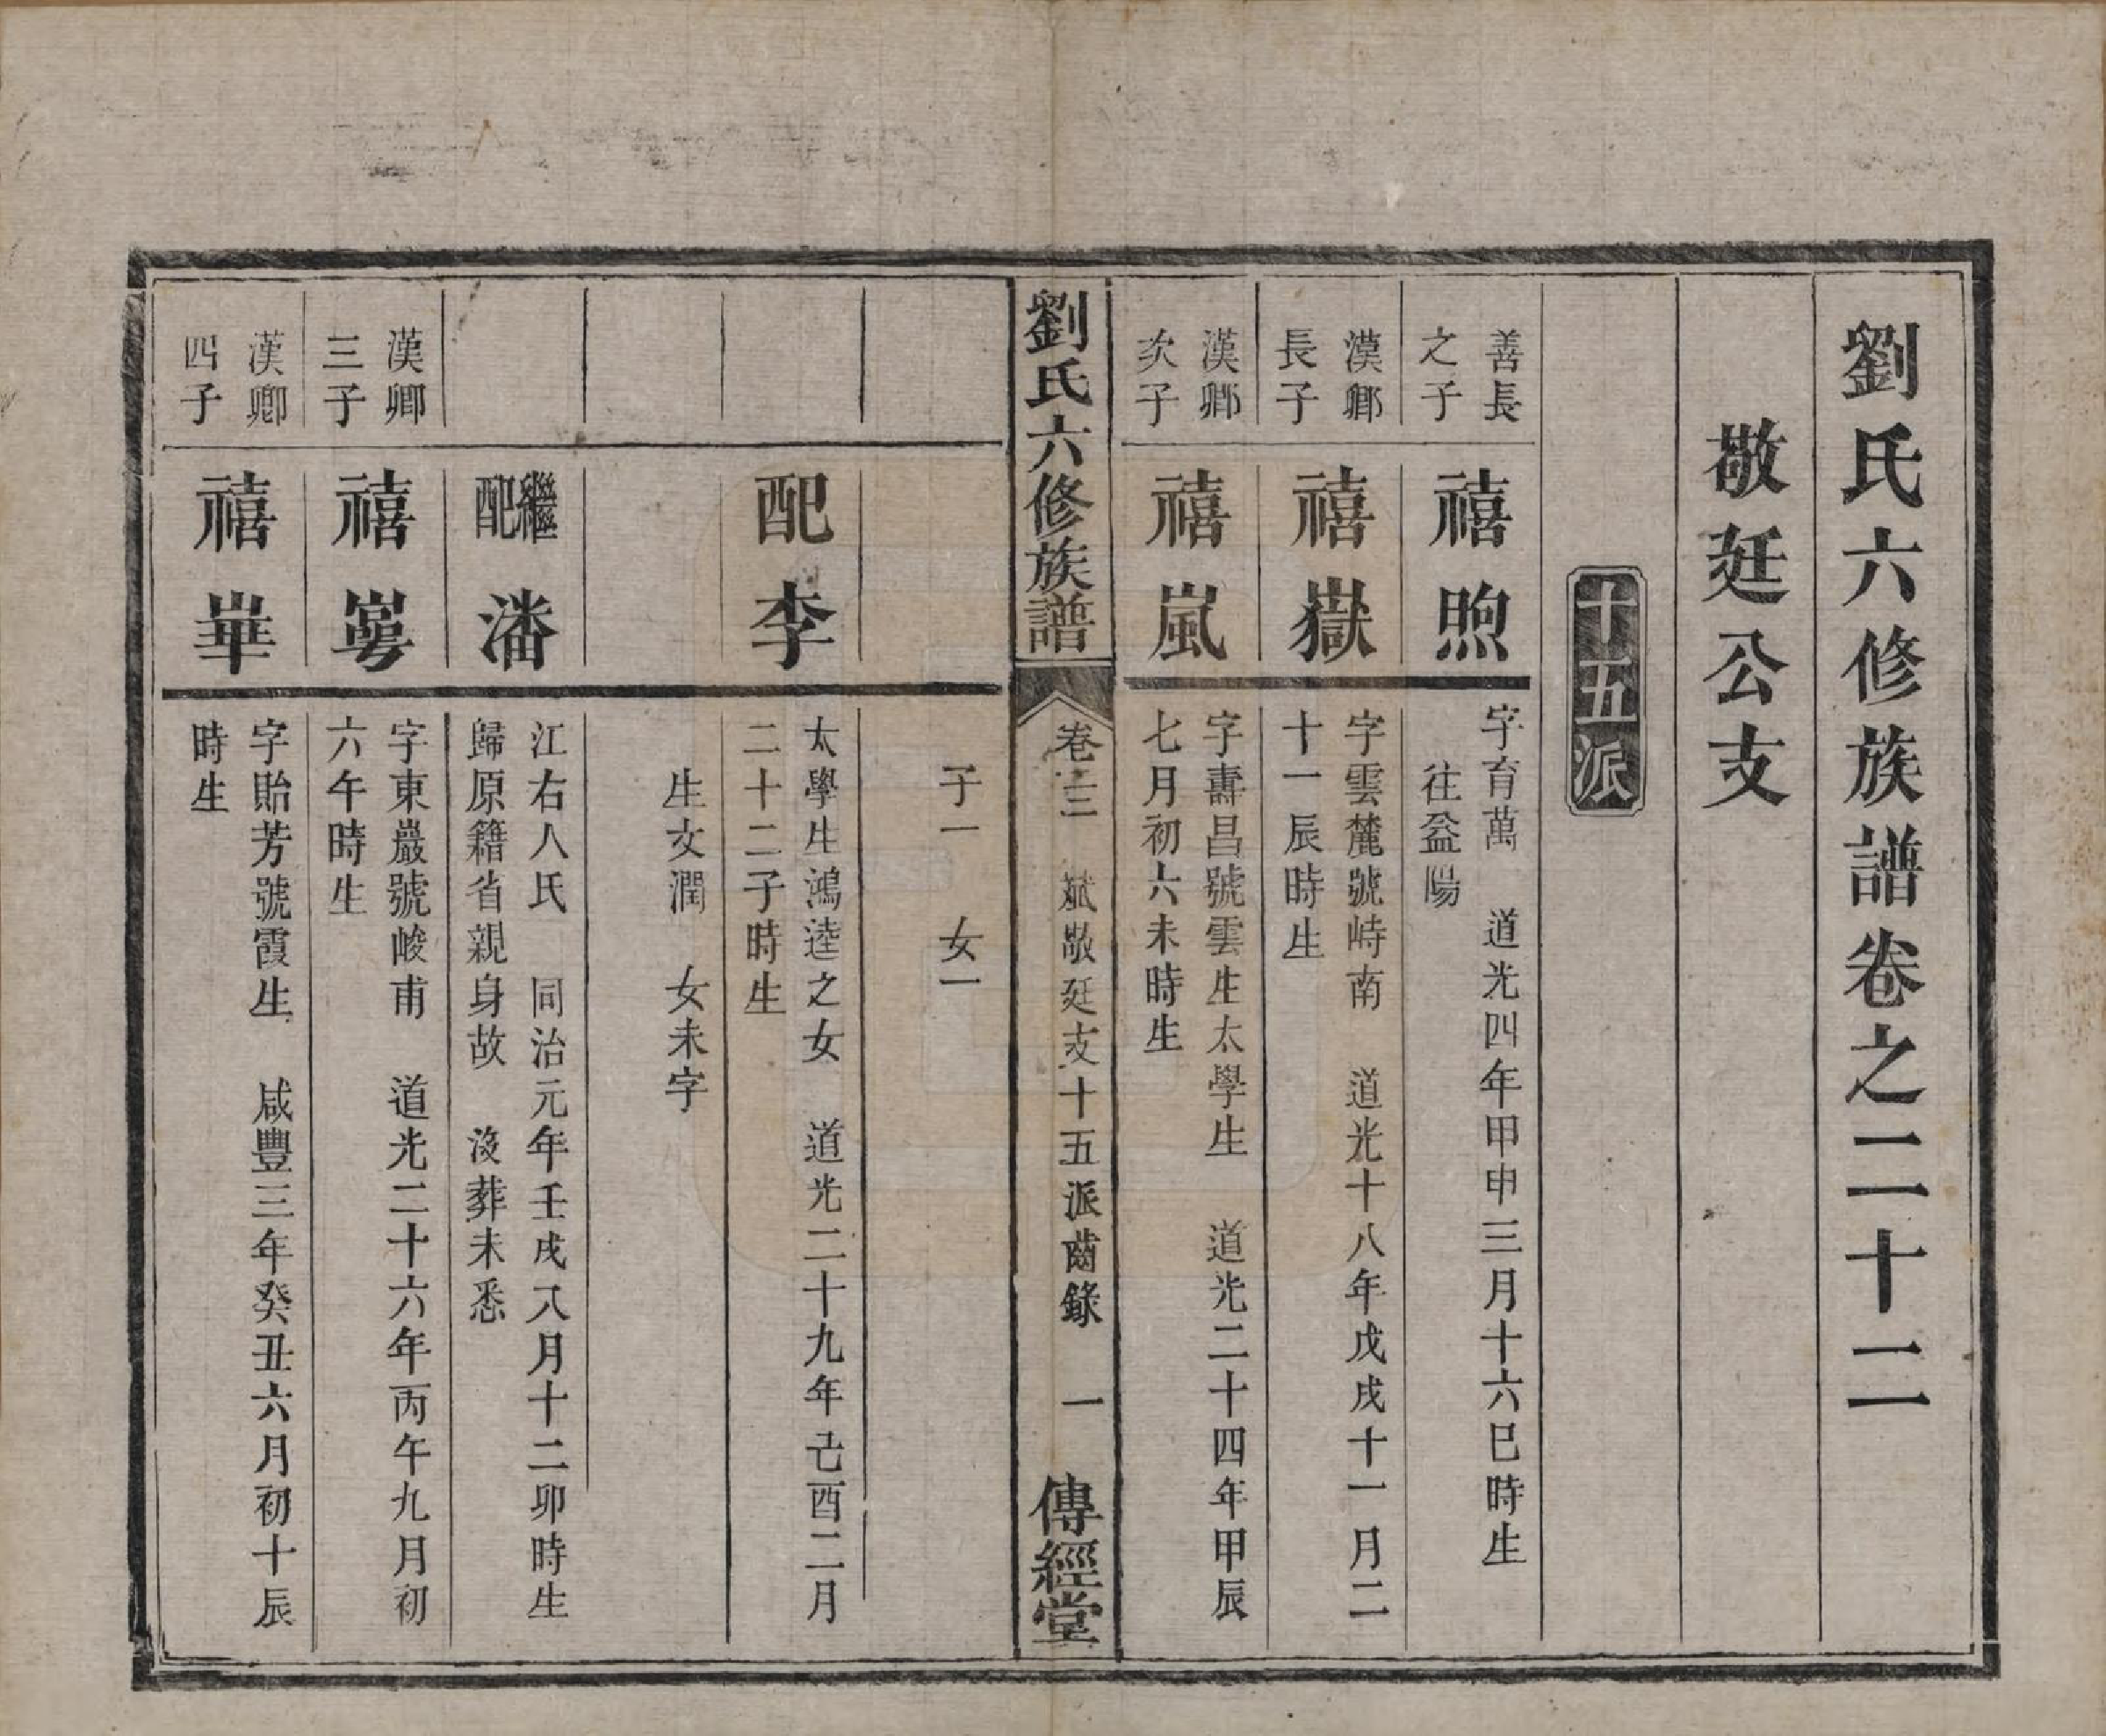 劉氏六修族譜卷之二十二
敬廷公支
十五派
善長
之子
禧煦
字育萬 道光四年甲申三月十六巳時生
往益陽
漢卿
長子
禧嶽
字雲麓號峙南 道光十八年戊戌十一月二
十一辰時生
漢卿
次子
禧嵐
字壽昌號雲生太學生 道光二十四年甲辰
七月初六未時生
劉氏六修族譜
卷 斌敬廷支十五派齒錄 一
傳經堂
子一 女一
配李
太學生鴻逵之女 道光二十九年己酉二月
二十二子時生
生文潤 女未字
繼配潘
江右人氏 同治元年壬戌八月十二卯時生
歸原籍省親身故 沒葬未悉
漢卿
三子
禧崿
字東巖號峻甫 道光二十六年丙午九月初
六午時生
漢卿
四子
禧崋
字貽芳號霞生 咸豐三年癸丑六月初十辰
時生